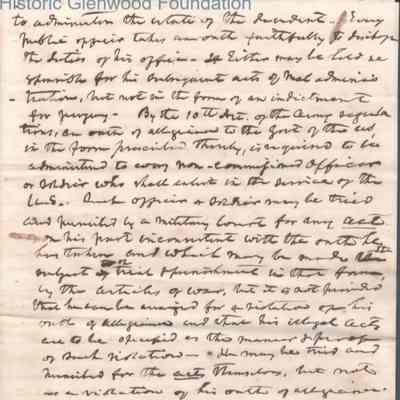 Historic Glenwood Foundation
to administer the estate of the decedent. Every
public officer takes an oath faithfully to discharge
the duties of his office. Either may be held re
sponsible for his subsequent acts of mal adminis
tration, but not in the form of an indictment
for perjury - By the 10th Art. of the Army regula
tions, an oath of allegiance to the Govt of the
in the form prescribed thereby, is required to be
administered to every non-commissioned Officer
or Soldier who shall enlist in the service of the
Such officer or Soldier may be tried
and punished by a military Court for any act
on his part inconsistent with the oath he
has taken and which may be made the
subject of trial & punishment in that form,
by the articles of war, but it is not provided
that he can be arraigned for a violation of his
oath of allegiance and that his illegal acts
are to be specified as the manner & proof
of such violation - He may be tried and
punished for the acts themselves, but not
as a violation of his oath of allegiance.